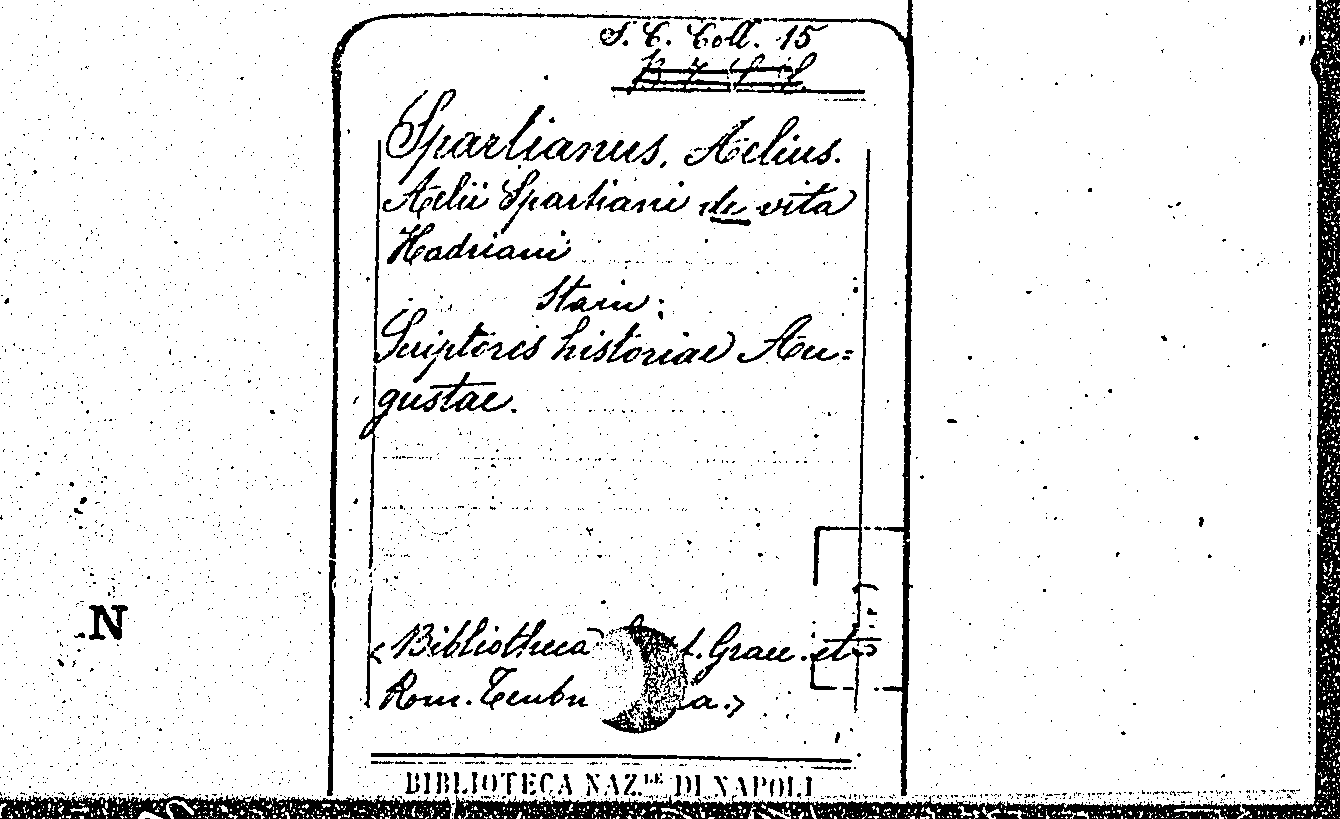 S. C. Coll. 15
Spartianus, Aelius.
Aelii Spartiani de vita
Hadriani
Scriptores historiae Au=
gustae.
N
<Bibliotheca Graec. et
Rom. Teubn a.>
BIBLIOTECA NAZ.LE DI NAPOLI